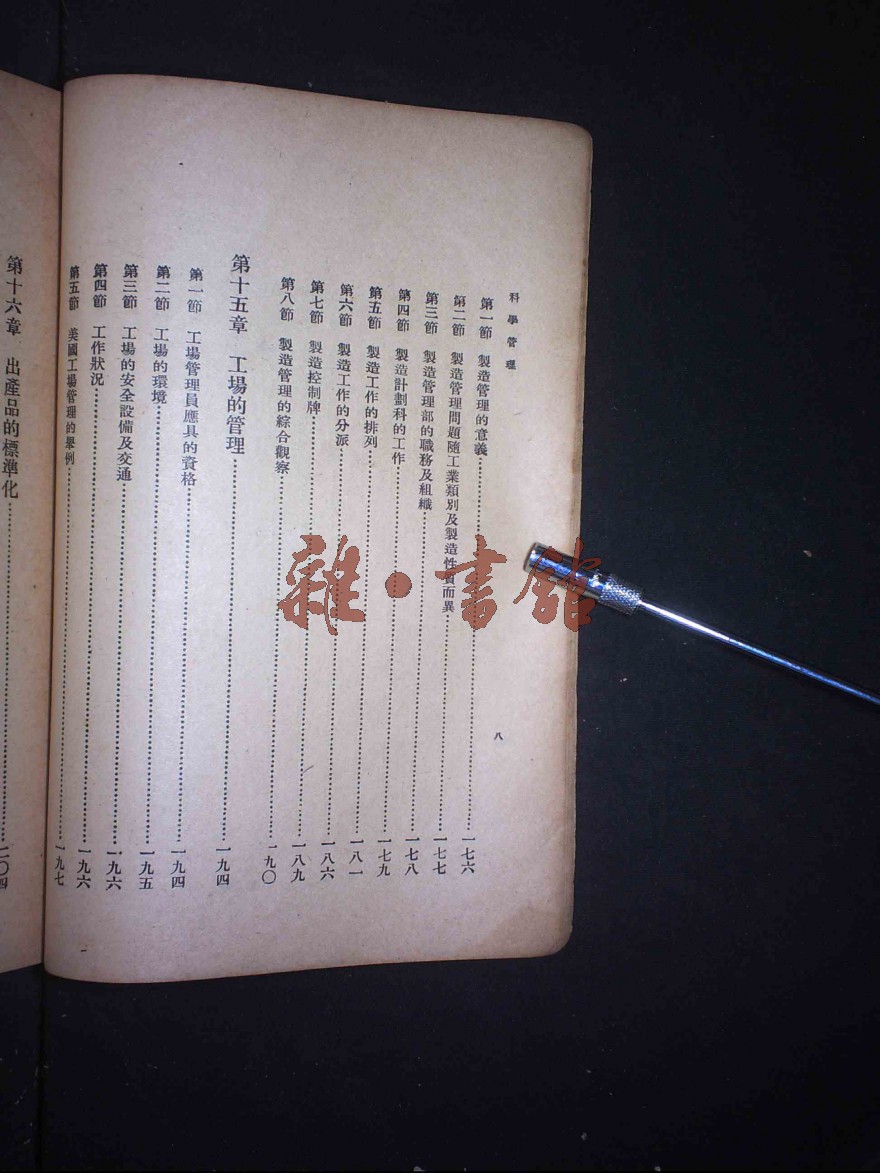 科學管理
八
第一節 製造管理的意義……一七六
第二節 製造管理問題隨工業類別及製造性質而異……一七七
第三節 製造管理部的職務及組織……一七八
第四節 製造計劃科的工作……一七九
第五節 製造工作的排列……一八一
第六節 製造工作的分派……一八六
第七節 製造控制牌……一八九
第八節 製造管理的綜合觀察……一九〇
第十五章 工場的管理……一九四
第一節 工場管理員應具的資格……一九四
第二節 工場的環境……一九五
第三節 工場的安全設備及交通……一九六
第四節 工作狀況……一九六
第五節 美國工場管理的舉例……一九七
第十六章 出產品的標準化……二〇四
雜·書館